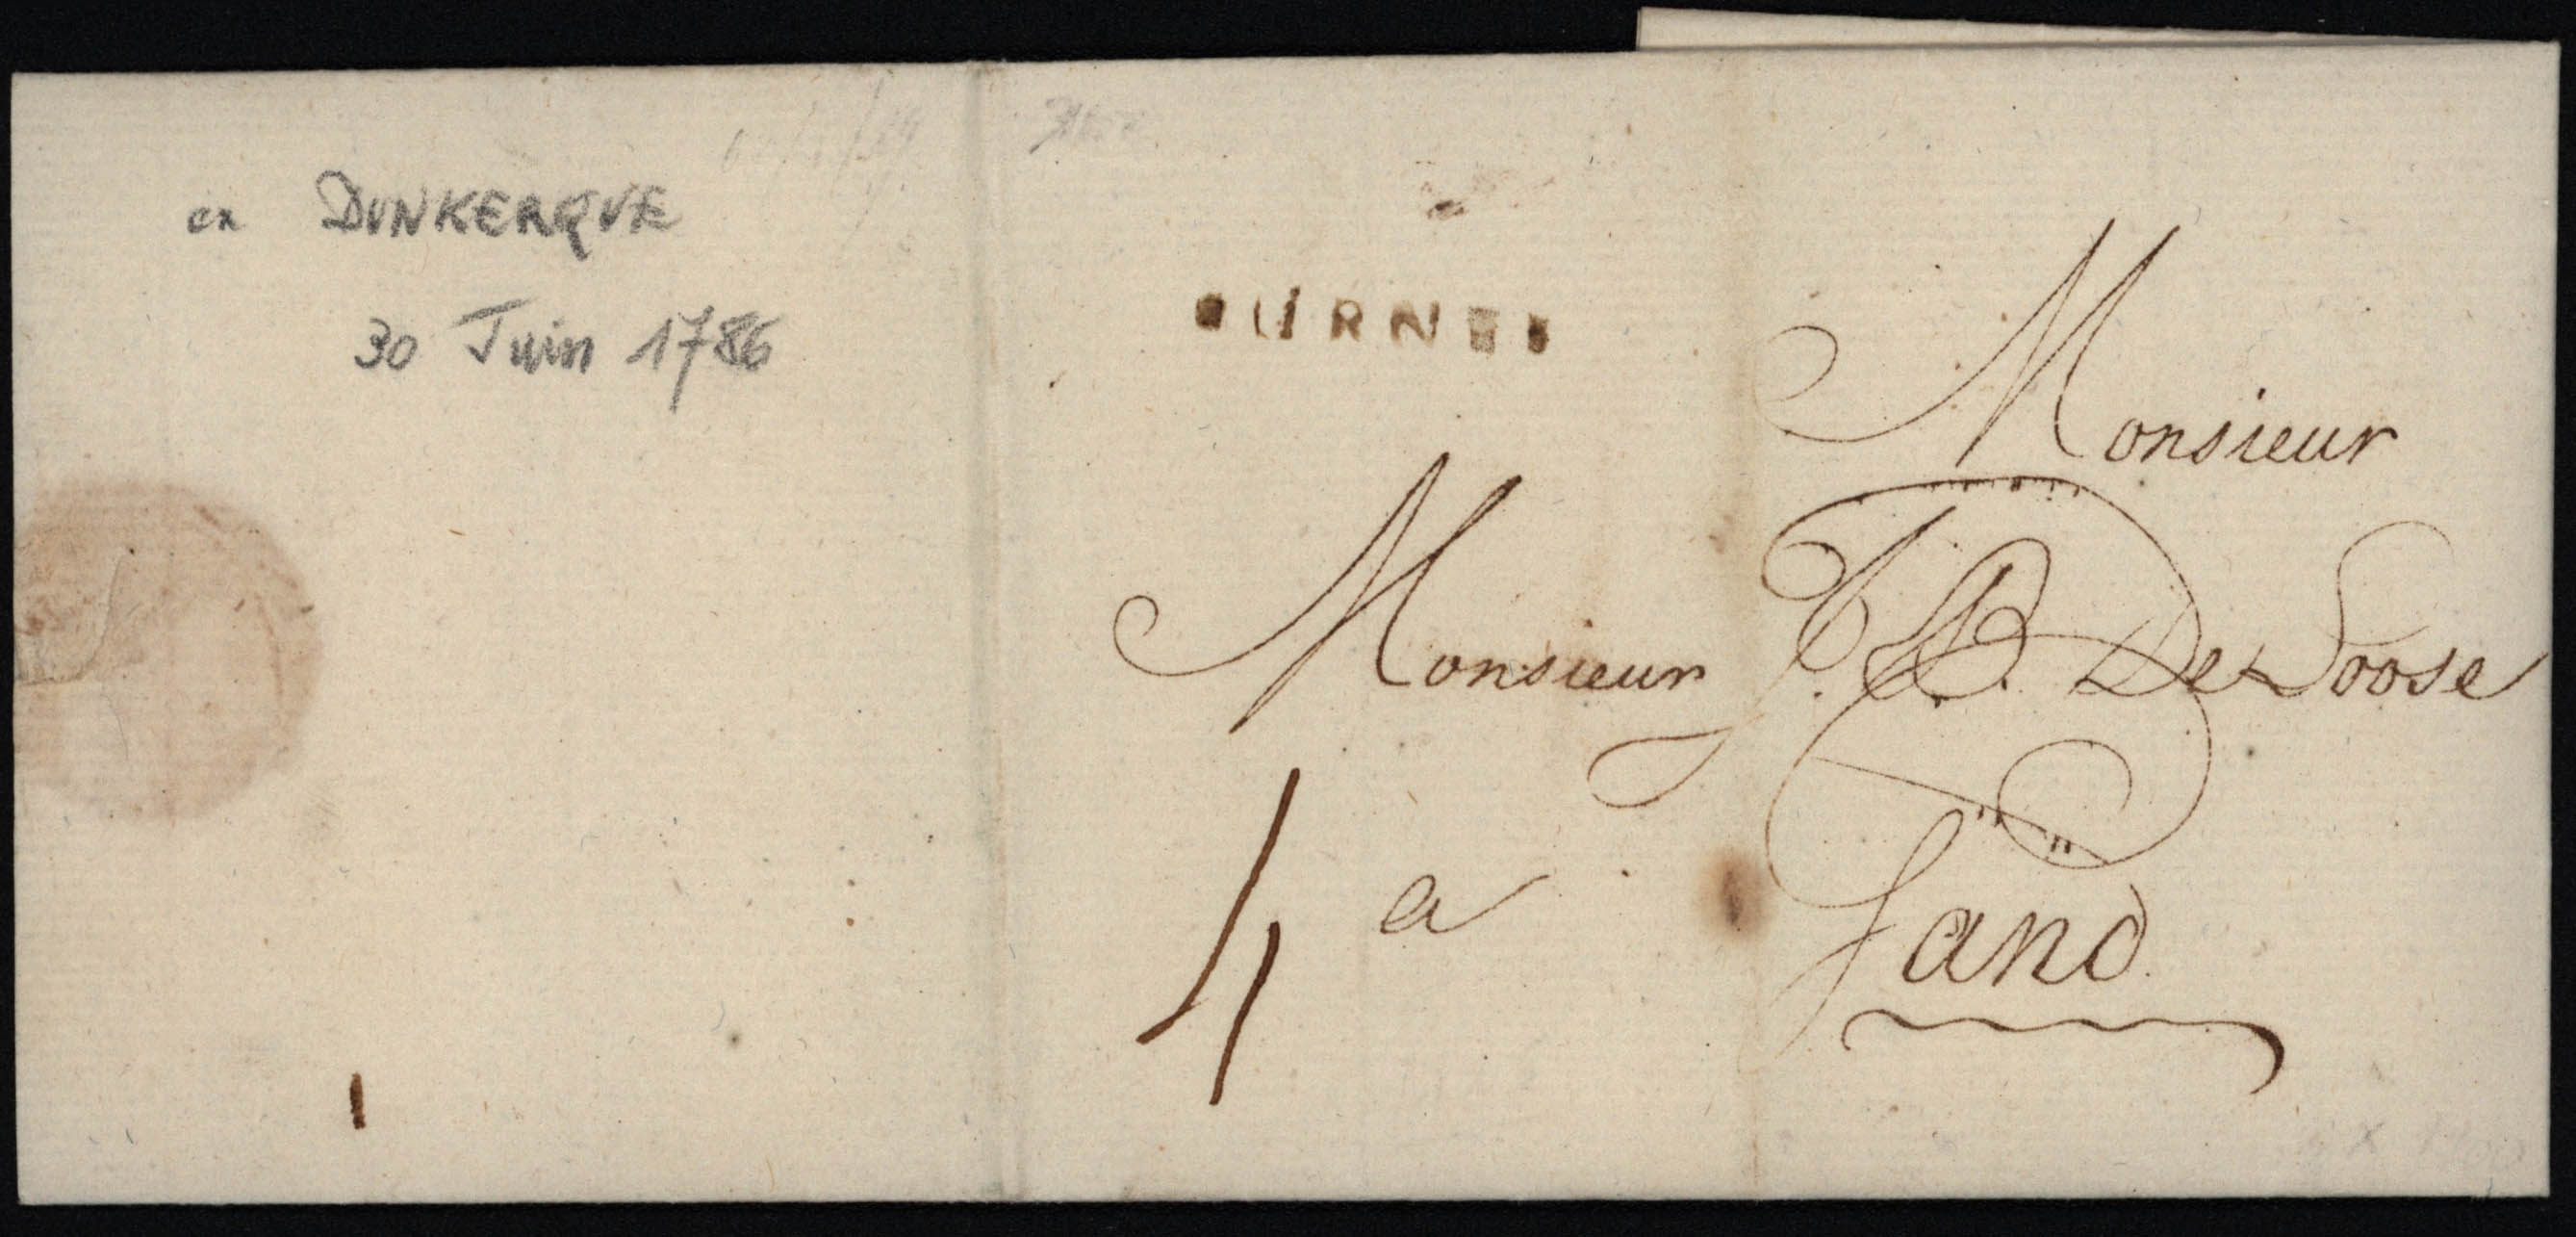 ex DUNKERQUE
30 Juin 1786
FURNES
Monsieur
Monsieur J. B. De Loose
4
a
Gand